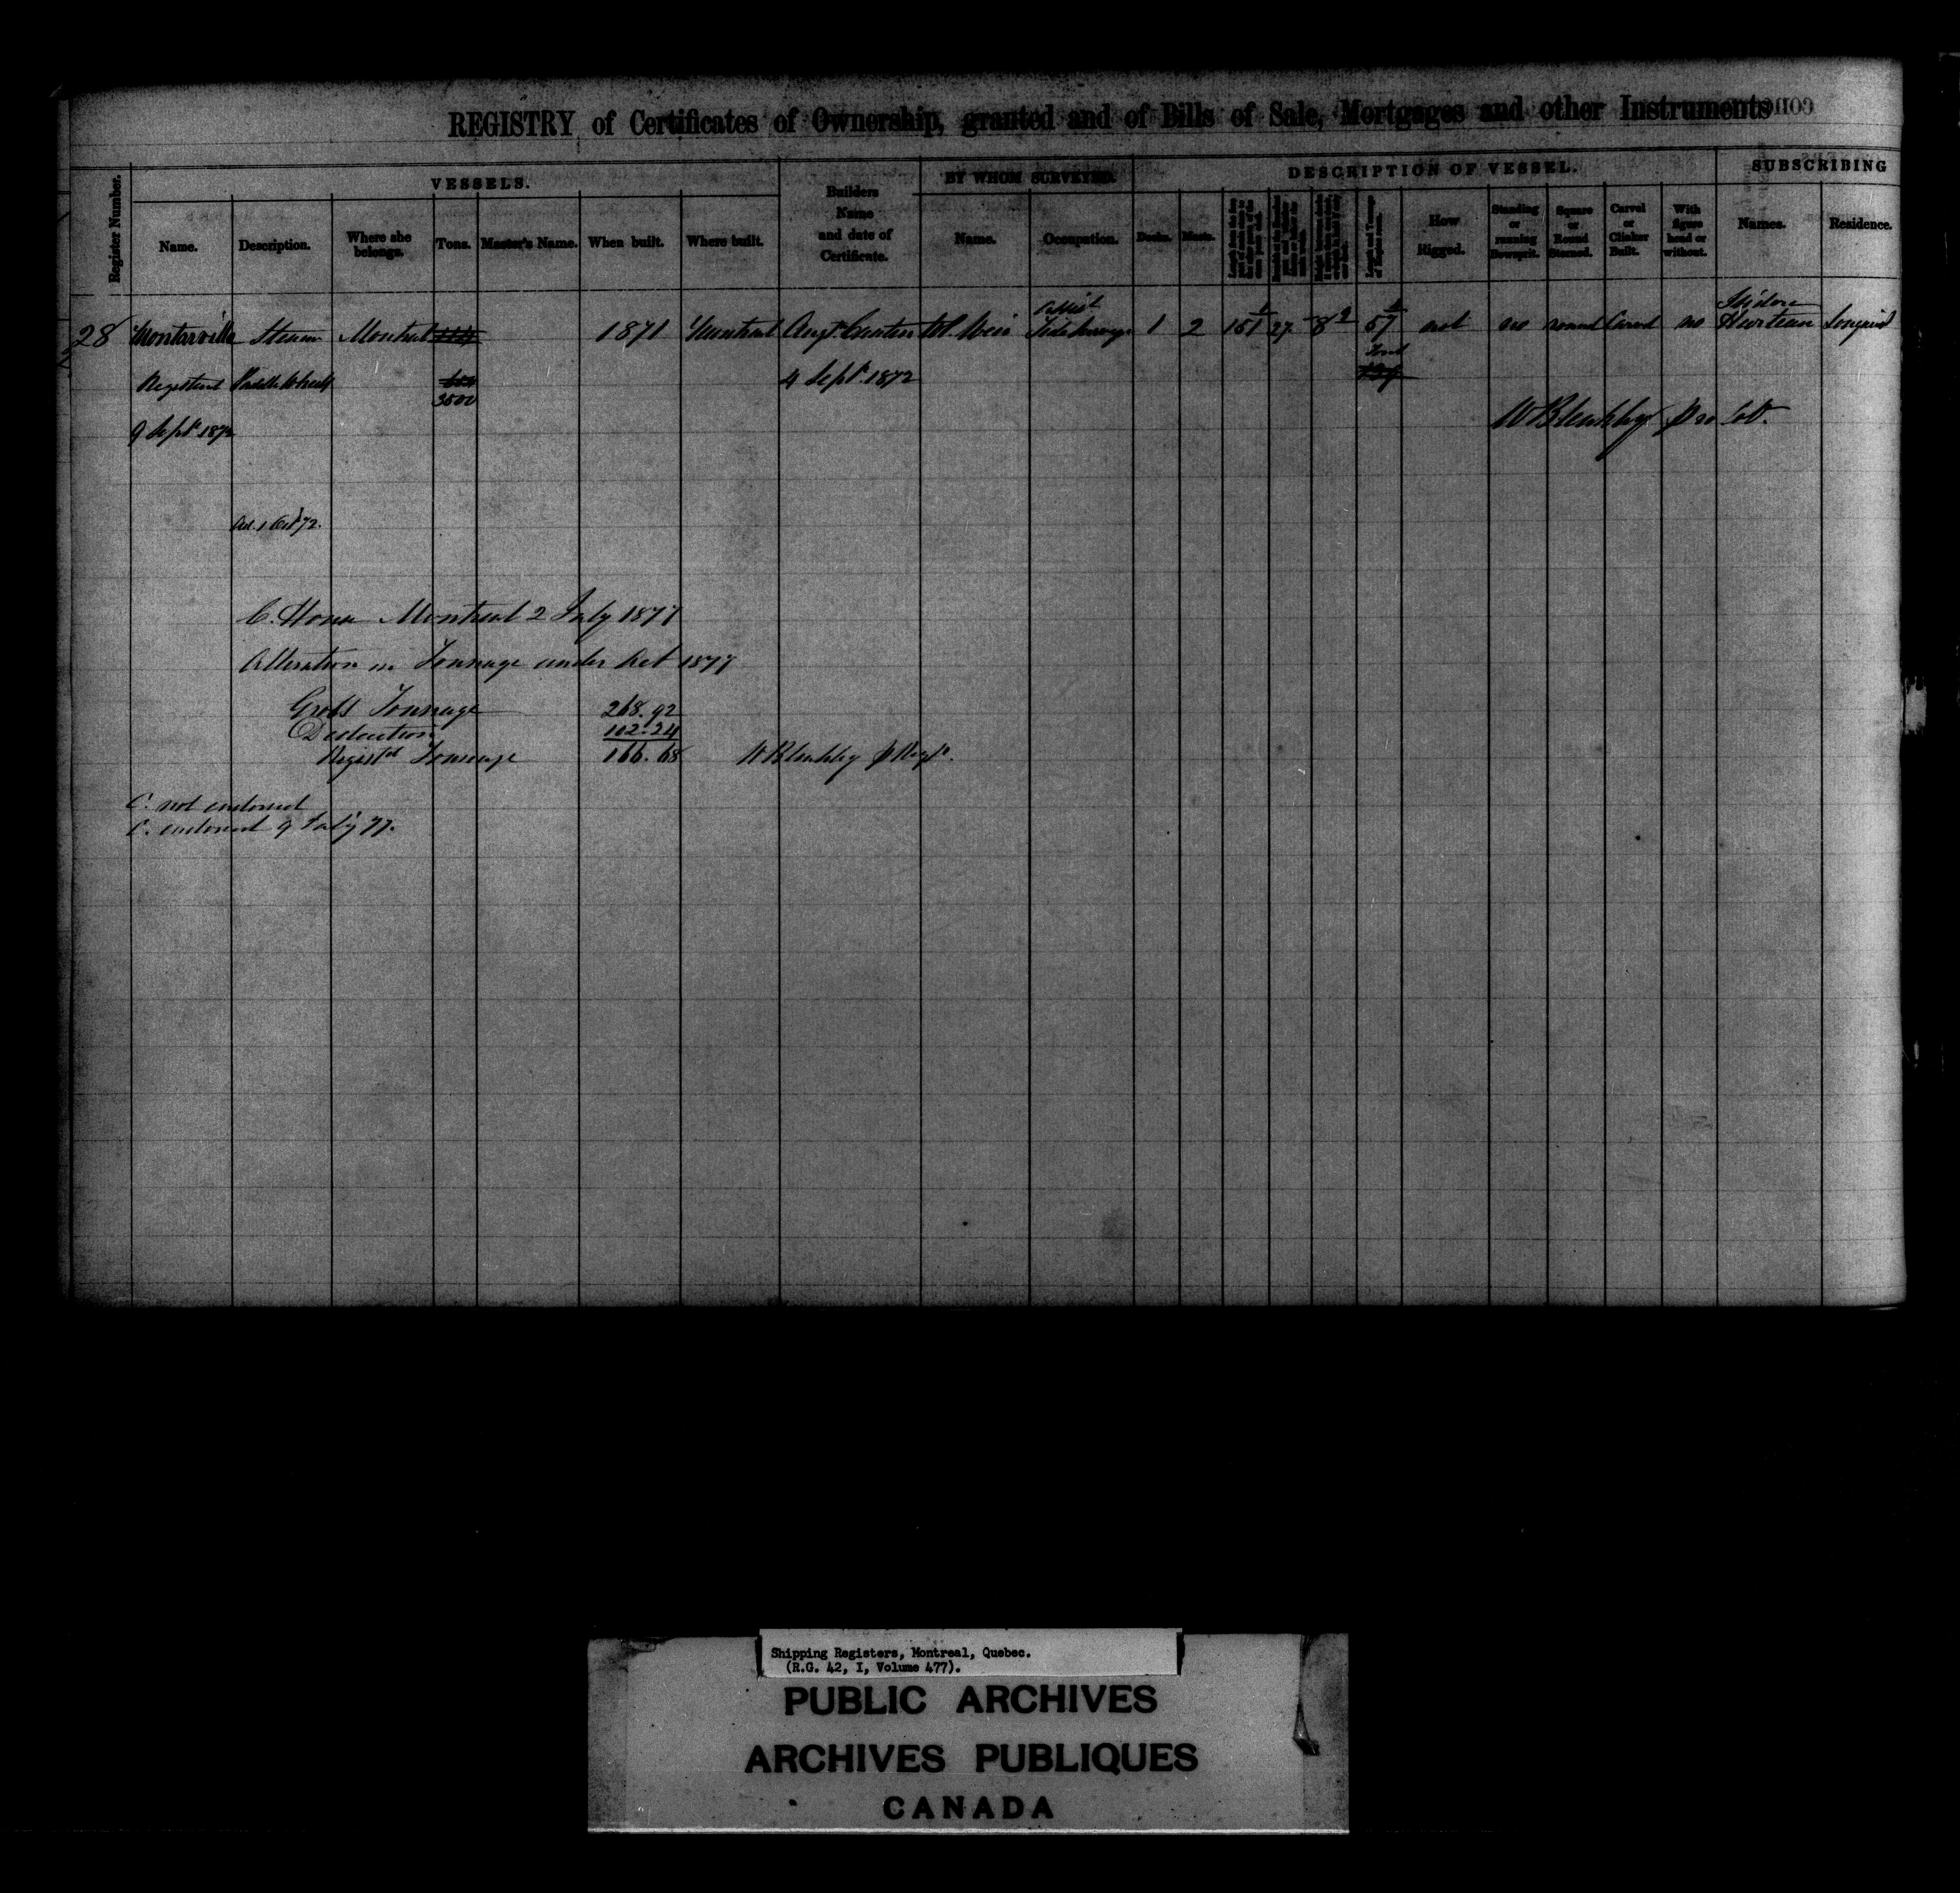 REGISTRY of Certificates of Ownership, granted and of Bills of Sale, Mortgages and other Instruments
VESSELS.
BY WHOM SURVEYED.
DESCRIPTION OF VESSEL.
SUBSCRIBING
Register Number.
Name.
Description.
Where she belongs.
Tons.
Master's Name.
When built.
Where built.
Builders Name and date of Certificate.
Name.
Occupation.
Decks.
Masts.
How Rigged.
Standing or running Bowsprit.
Square or Round Sterned.
Carvel or Clinker Built.
With figure head or without.
Names.
Residence.
28 Montarville Steam Montreal 1871 Montreal Augt. Cantin W. Weir 1 2 151 27 8 57 not no round Carvel no Isidore Hurteau Longueuil
Registered Paddle Wheels 4 Sept. 1872
9 Sept. 1872
W Bleakley pro Col.
Ad. 1 Oct 72.
C. House Montreal 2 July 1877
Alteration in Tonnage under Act 1877
Gross Tonnage 268.92
Deduction 102.24
Registd Tonnage 166.68 W Bleakley
C. not endorsed
C. endorsed 9 July 77.
Shipping Registers, Montreal, Quebec.
(R.G. 42, I, Volume 477).
PUBLIC ARCHIVES
ARCHIVES PUBLIQUES
CANADA